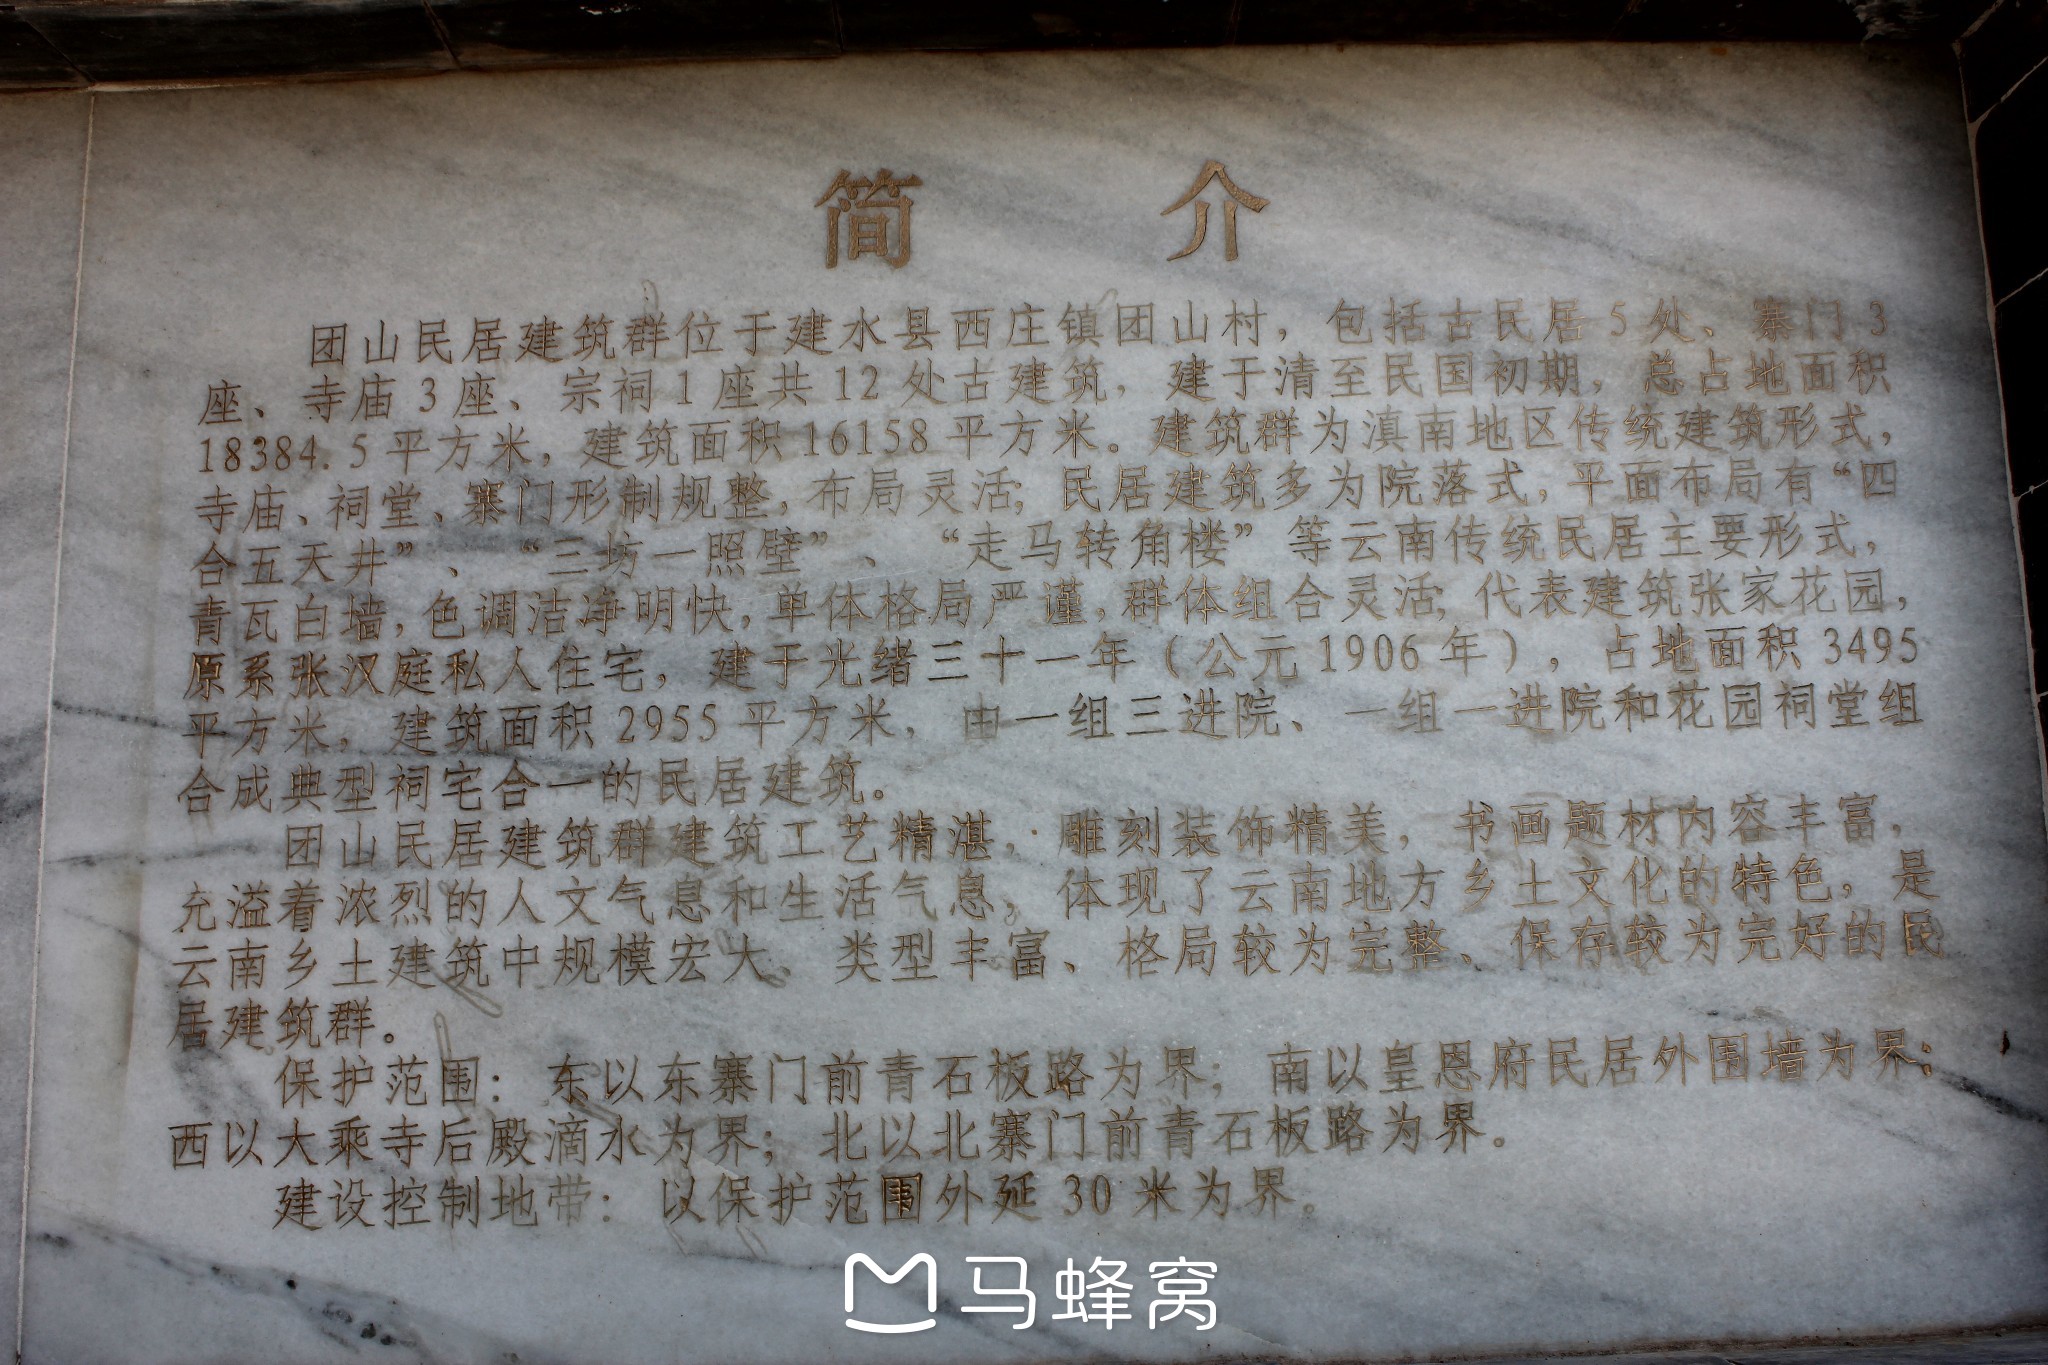 简 介
团山民居建筑群位于建水县西庄镇团山村，包括古民居5处、寨门3
座、寺庙3座、宗祠1座共12处古建筑，建于清至民国初期，总占地面积
18384.5平方米，建筑面积16158平方米。建筑群为滇南地区传统建筑形式，
寺庙、祠堂、寨门形制规整，布局灵活；民居建筑多为院落式，平面布局有“四
合五天井”、“三坊一照壁”、“走马转角楼”等云南传统民居主要形式，
青瓦白墙，色调洁净明快，单体格局严谨，群体组合灵活；代表建筑张家花园，
原系张汉庭私人住宅，建于光绪三十一年（公元1906年），占地面积3495
平方米，建筑面积2955平方米，由一组三进院、一组一进院和花园祠堂组
合成典型祠宅合一的民居建筑。
团山民居建筑群建筑工艺精湛，雕刻装饰精美，书画题材内容丰富，
充溢着浓烈的人文气息和生活气息，体现了云南地方乡土文化的特色，是
云南乡土建筑中规模宏大、类型丰富、格局较为完整、保存较为完好的民
居建筑群。
保护范围：东以东寨门前青石板路为界；南以皇恩府民居外围墙为界；
西以大乘寺后殿滴水为界；北以北寨门前青石板路为界。
建设控制地带：以保护范围外延30米为界。
马蜂窝